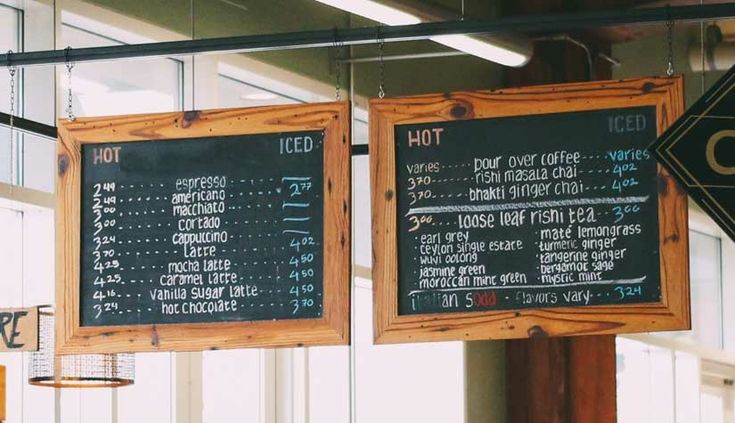 HOT ICED
2.49 espresso
2.49 americano 2.77
3.00 macchiato
3.00 cortado
3.24 cappuccino
3.70 latte 4.02
4.25 mocha latte 4.50
4.25 caramel latte 4.50
4.16 vanilla sugar latte 4.50
3.24 hot chocolate 3.70
HOT ICED
varies pour over coffee varies
3.70 rishi masala chai 4.02
3.70 bhakti ginger chai 4.02
3.00 loose leaf rishi tea 3.00
• earl grey
• ceylon single estate
• wuyi oolong
• jasmine green
• moroccan mint green
• maté lemongrass
• turmeric ginger
• tangerine ginger
• bergamot sage
• mystic mint
italian soda flavors vary 3.24
RE
C